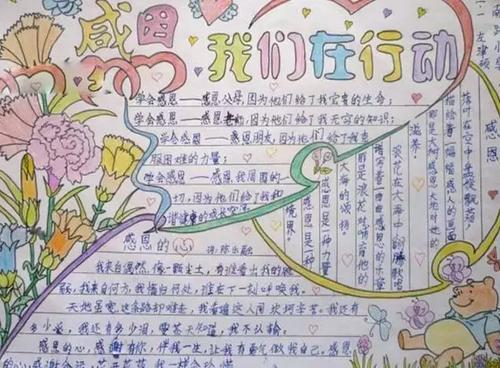 感恩
我们在行动
学会感恩——感恩父母,因为他们给了我宝贵的生命;
学会感恩——感恩老师,因为他们给了我无穷的知识;
学会感恩——感恩朋友,因为他们给了我克
服困难的力量;
学会感恩——感恩我周围的一
切,因为他们给了我和
谐健康的成长空间
感恩
落叶在空中盘旋飘落,
描绘着一幅幅感人的画面
那是大树感恩大地对她的
滋养;
浪花在大海中翻腾歌唱
那是浪花对哺育他的
大海的诚挚。
感恩是一种力量
感恩是一种
境界!
感恩的心
词:陈乐融
我来自偶然,像一颗尘土,有谁看出我的脆
弱,我来自何方,我情归何处,谁在下一刻呼唤我。
天地虽宽,这条路却难走,我看遍这人间坎坷辛苦。我还有
多少爱,我还有多少泪,要苍天知道,我不认输。
感恩的心,感谢有你,伴我一生,让我有勇气做我自己。感恩
的心,感谢命运,花开花落,我一样会珍惜